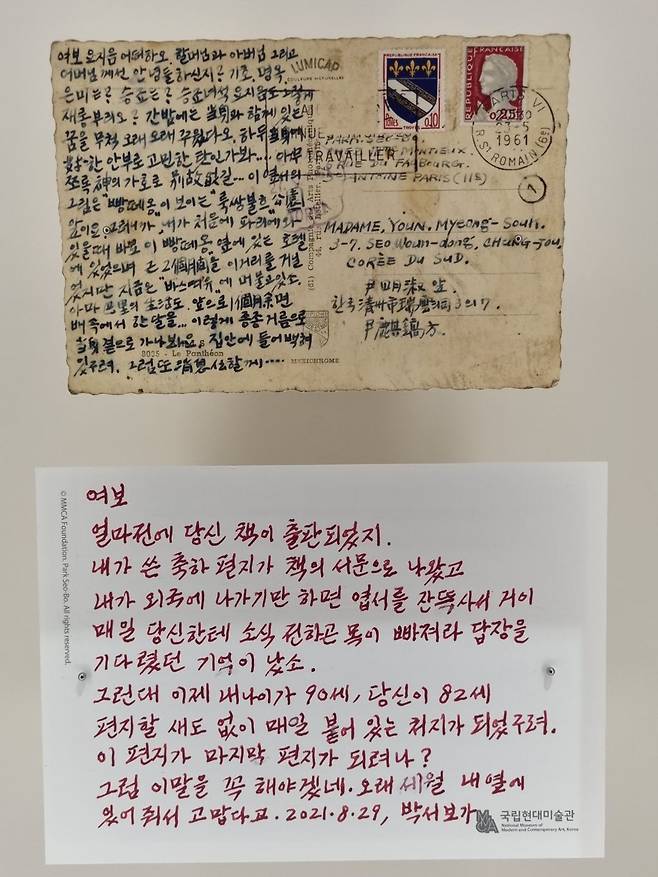 여보 요지음 어떠하오. 할머님과 아버님 그리고
어머님께선 안녕들하신지? 기초, 명욱,
은미는? 승조는? 승조녀석 요지음도 그렇게
재롱부리오? 간밤에는 함께 있는
꿈을 무척 오래 오래 꾸웠다오. 하두
안부로 고민한 탓인가봐.... 아무
쪼록 神의 가호로 別故없길... 이 엽서의
그림은 "빵떼옹"이 보이는 公園
앞이요. 내가 처음에 파리에 와
있을때 바로 이 빵떼옹 옆에 있는 호텔
에 있었으며 2個月間을 이거리를 거닐
었지만 지금은 머물고있소.
아마 앞으로 1個月余면
배속에서 한달을... 이렇게 종종 거름으로
곁으로 가나봐요. 집안에 들어백혀
있구려. 그럼 또 消息
8025 - Le Panthéon
MEXICHROME
LUMICAP
REPUBLIQUE FRANÇAISE
0,10
REPUBLIQUE FRANÇAISE
0,25
PARIS VI
1961
R. ST ROMAIN (6e)
TRAVAILLER
PARK. SEO-BO.
MONTIEUX.
RUE DU FAUBOURG.
ANTOINE PARIS (11e)
1
MADAME, YOUN. MYEONG-SOUK.
3-7. SEO Woun-dong, CHUNG-JOU,
CORÉE DU SUD.
尹明淑 앞
한국 淸州市 瑞雲洞 3의 7.
尹麒鎬方
© MMCA Foundation. Park Seo-Bo. All rights reserved.
여보
얼마전에 당신 책이 출판되었지.
내가 쓴 축하 편지가 책의 서문으로 나왔고
내가 외국에 나가기만 하면 엽서를 잔뜩사서 거이
매일 당신한테 소식 전하곤 목이 빠져라 답장을
기다렸던 기억이 났소.
그런대 이제 내나이가 90세, 당신이 82세
편지할 새도 없이 매일 붙어 있는 처지가 되었구려.
이 편지가 마지막 편지가 되려나?
그럼 이말을 꼭 해야겠네. 오래 세월 내 옆에
있어 줘서 고맙다고. 2021.8.29, 박서보가
국립현대미술관
National Museum of
Modern and Contemporary Art, Korea